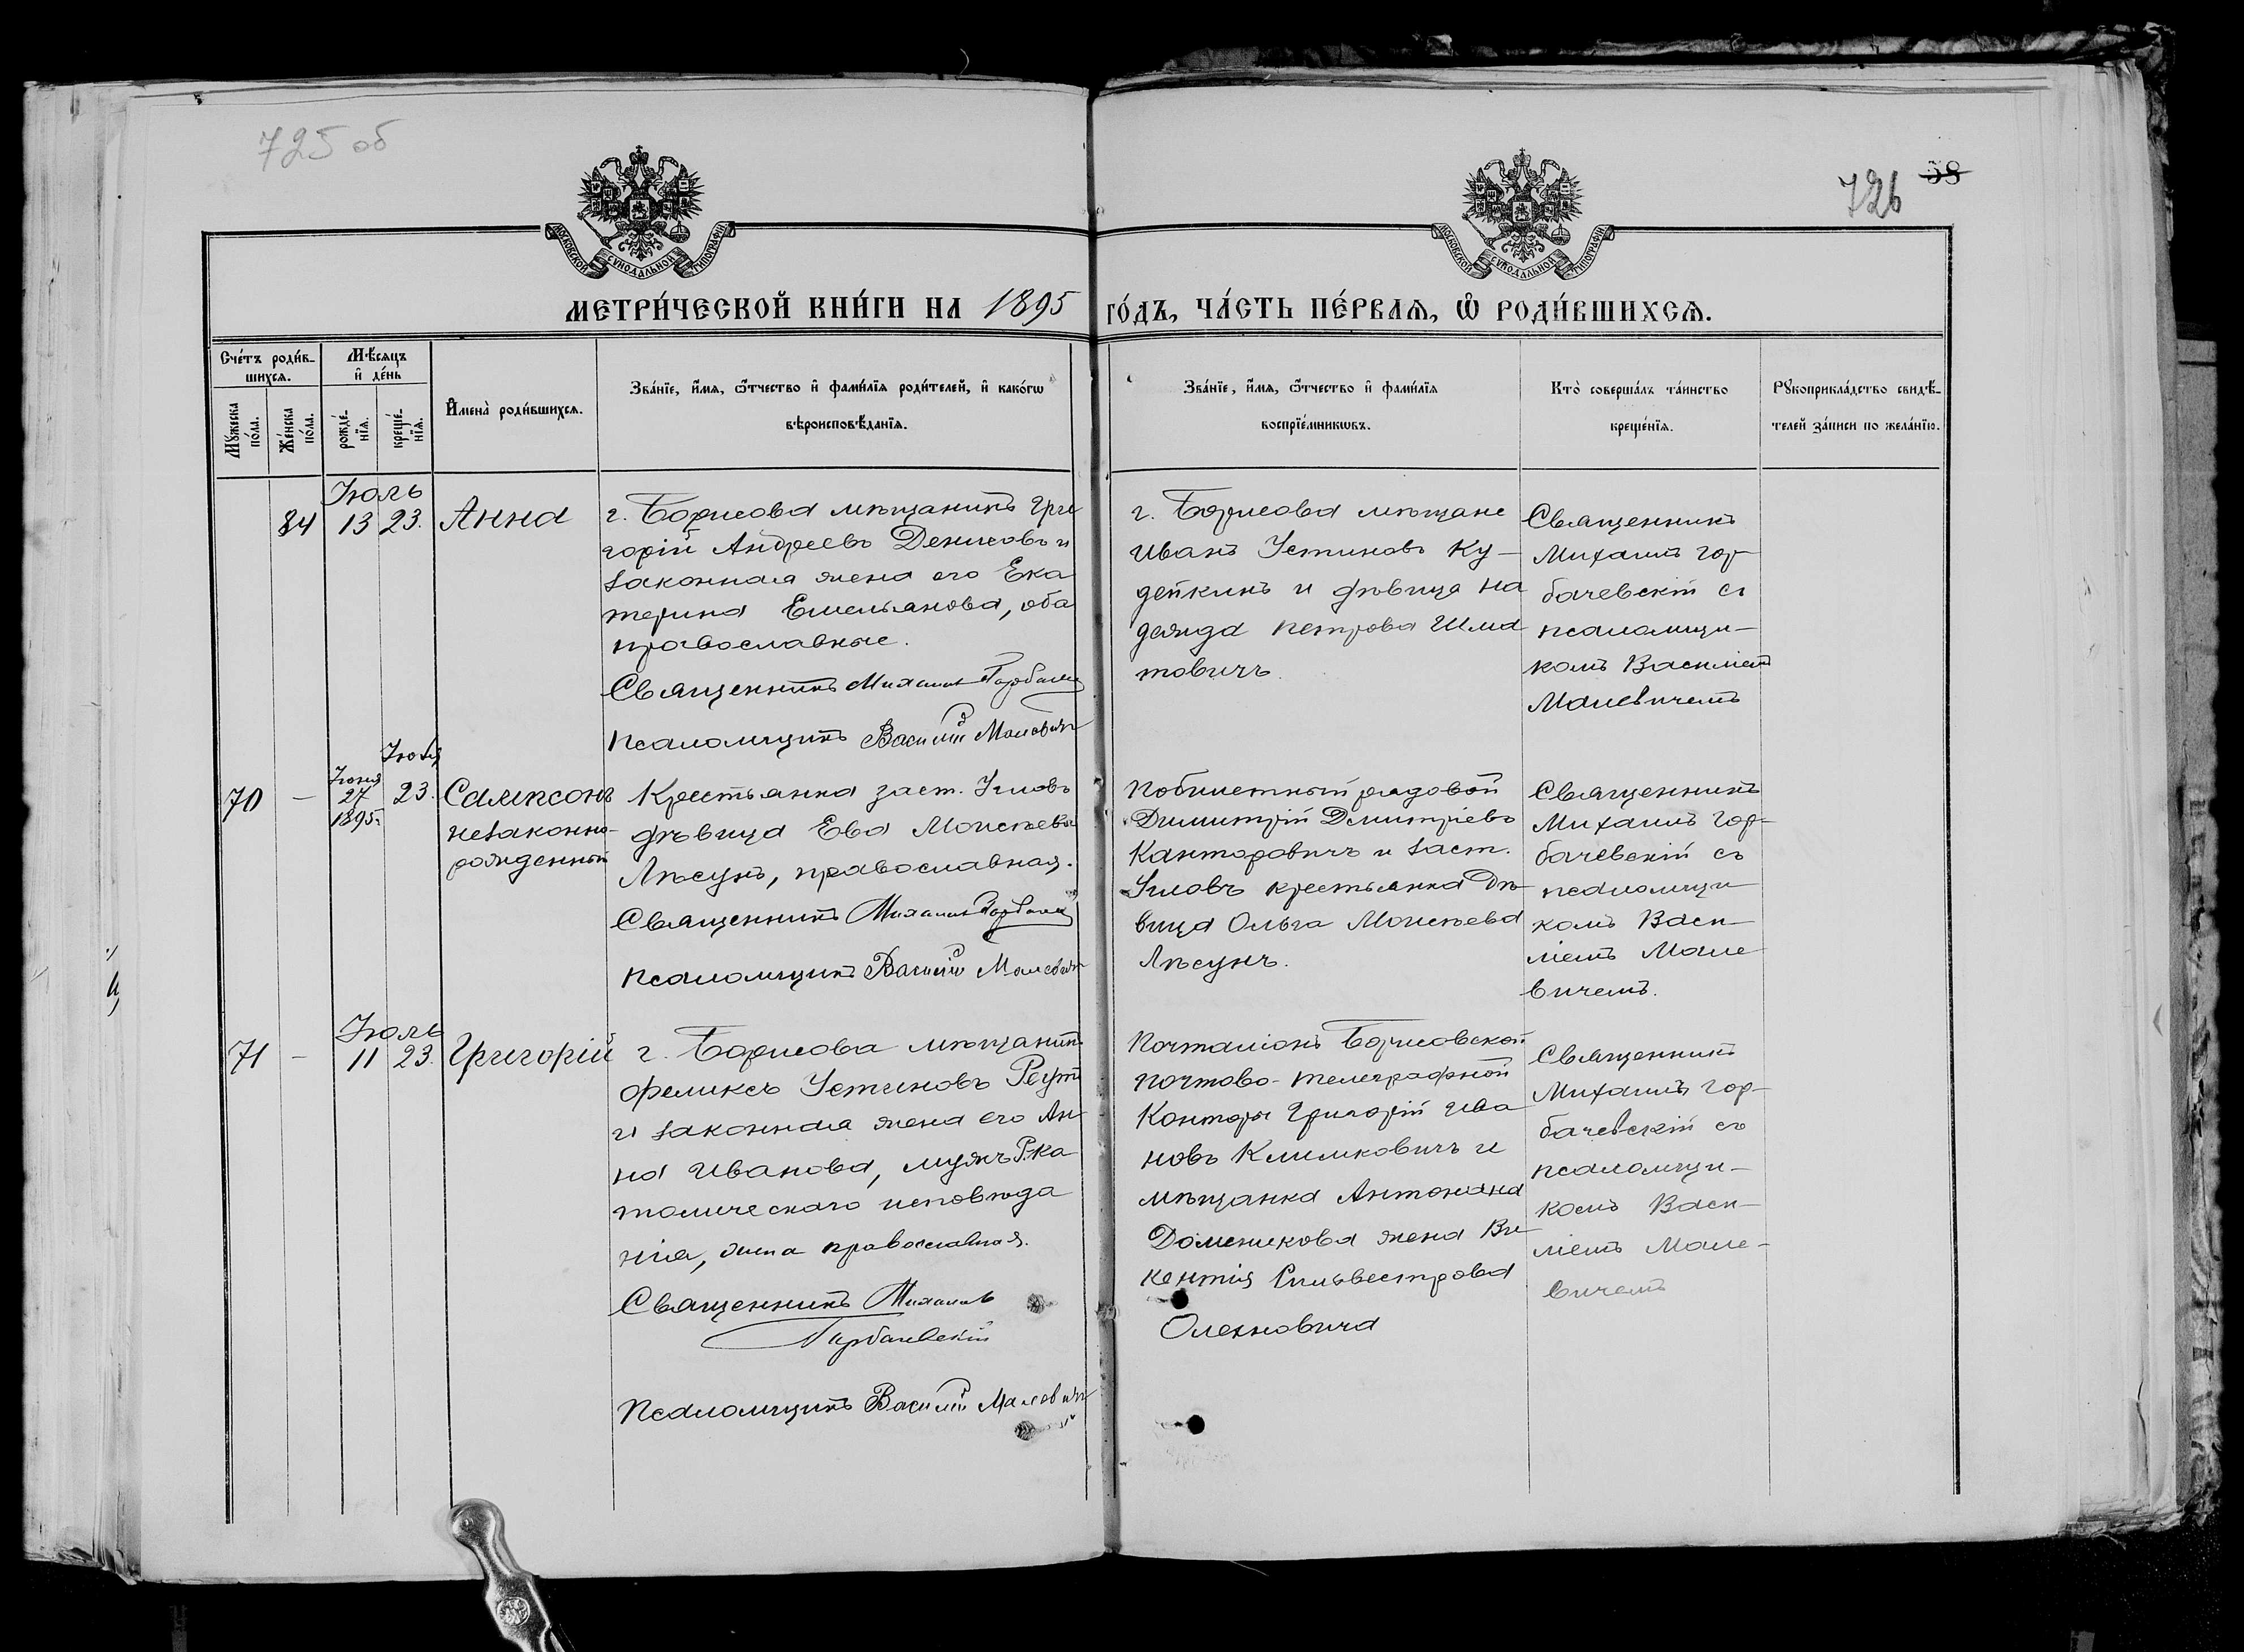 725 об
726 58
МОСКОВСКОЙ СѴНОДАЛЬНОЙ ТИПОГРАФІИ
МОСКОВСКОЙ СѴНОДАЛЬНОЙ ТИПОГРАФІИ
МЕТРИ́ЧЕСКОЙ КНИ́ГИ НА 1895 ГО́ДЪ, ЧА́СТЬ ПЕ́РВАѦ, Ѽ РОДИ́ВШИХСѦ.
Сче́тъ роди́в-
шихсѧ.
Мꙋ́жеска
по́ла.
Же́нска
по́ла.
Мѣ́сѧцъ
и҆ де́нь
рожде́-
нїѧ.
креще́-
нїѧ.
И҆мена̀ роди́вшихсѧ.
Зва́нїе, и҆́мѧ, ѻ҆́тчество и҆ фами́лїѧ роди́телей, и҆ како́гѡ
вѣроисповѣ́данїѧ.
Зва́нїе, и҆́мѧ, ѻ҆́тчество и҆ фами́лїѧ
воспрїе́мникѡвъ.
Кто̀ соверша́лъ та́инство
креще́нїѧ.
Рꙋкоприкла́дство свидѣ́-
телей за́писи по жела́нїю.
Іюль
84 13 23. Анна
г. Борисова мѣщанинъ Гри
горій Андреевъ Денисовъ и
законная жена его Ека
терина Емельянова, оба
православные.
Священникъ Михаилъ Горбачев
Псаломщикъ Василій Малевичъ
г. Борисова мѣщане
Иванъ Устиновъ Ку-
дейкинъ и дѣвица На
дежда Петрова Шма
товичъ.
Священникъ
Михаилъ Гор
бачевскій съ
псаломщи-
комъ Василіемъ
Малевичемъ
Іюля
Іюня
70 - 27 23.
1895 г.
Сампсонъ
незаконно-
рожденный
Крестьянка заст. Углов
дѣвица Ева Моисеева
Лѣсунъ, православная.
Священникъ Михаилъ Горбачев
Псаломщикъ Василій Малевичъ
Побилетный рядовой
Димитрій Дмитріевъ
Канторовичъ и заст.
крестьянка Дѣ
вица Ольга Моисеева
Лѣсунъ.
Священникъ
Михаилъ Гор-
бачевскій съ
псаломщи
комъ Васи-
ліемъ Мале
вичемъ.
Іюль
71 - 11 23. Григорій
г. Борисова мѣщанинъ
Феликсъ Устиновъ Реутъ
и законная жена его Ан
на Иванова, мужъ Р.ка
толическаго исповѣда
нія, жена православная.
Священникъ Михаилъ
Горбачевскій
Псаломщикъ Василій Малевичъ
Почталіонъ Борисовской
почтово-телеграфной
Конторы Григорій Ива
новъ Климковичъ и
мѣщанка Антонина
Доменикова жена Ви
кентія Сильвестрова
Олехновича
Священникъ
Михаилъ Гор-
бачевскій съ
псаломщи-
комъ Васи-
ліемъ Мале-
вичемъ